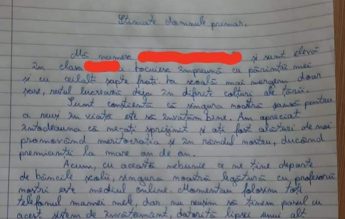 Stimate domnule primar,
Mă numesc și sunt elevă
în clasa locuiesc împreună cu părinții mei
și cu ceilalți șapte frați la școală mai mergem doar
șase, restul lucrează deja în diferite colțuri ale țării.
Sunt conștientă că singura noastră șansă pentru
a reuși în viață este să învățăm bine. Am apreciat
întotdeauna că ne-ați sprijinit și ați fost alături de noi
promovând meritocrația și în satul nostru, ducând
premianții la mare an de an.
Acum, cu această nebunie ce ne ține departe
de băncile școlii, singura noastră legătură cu profesorii
noștri este mediul online. Momentan folosim toți
telefonul mamei mele, dar nu reușim să ținem pasul cu
acest sistem de învățământ, datorită lipsei unui alt